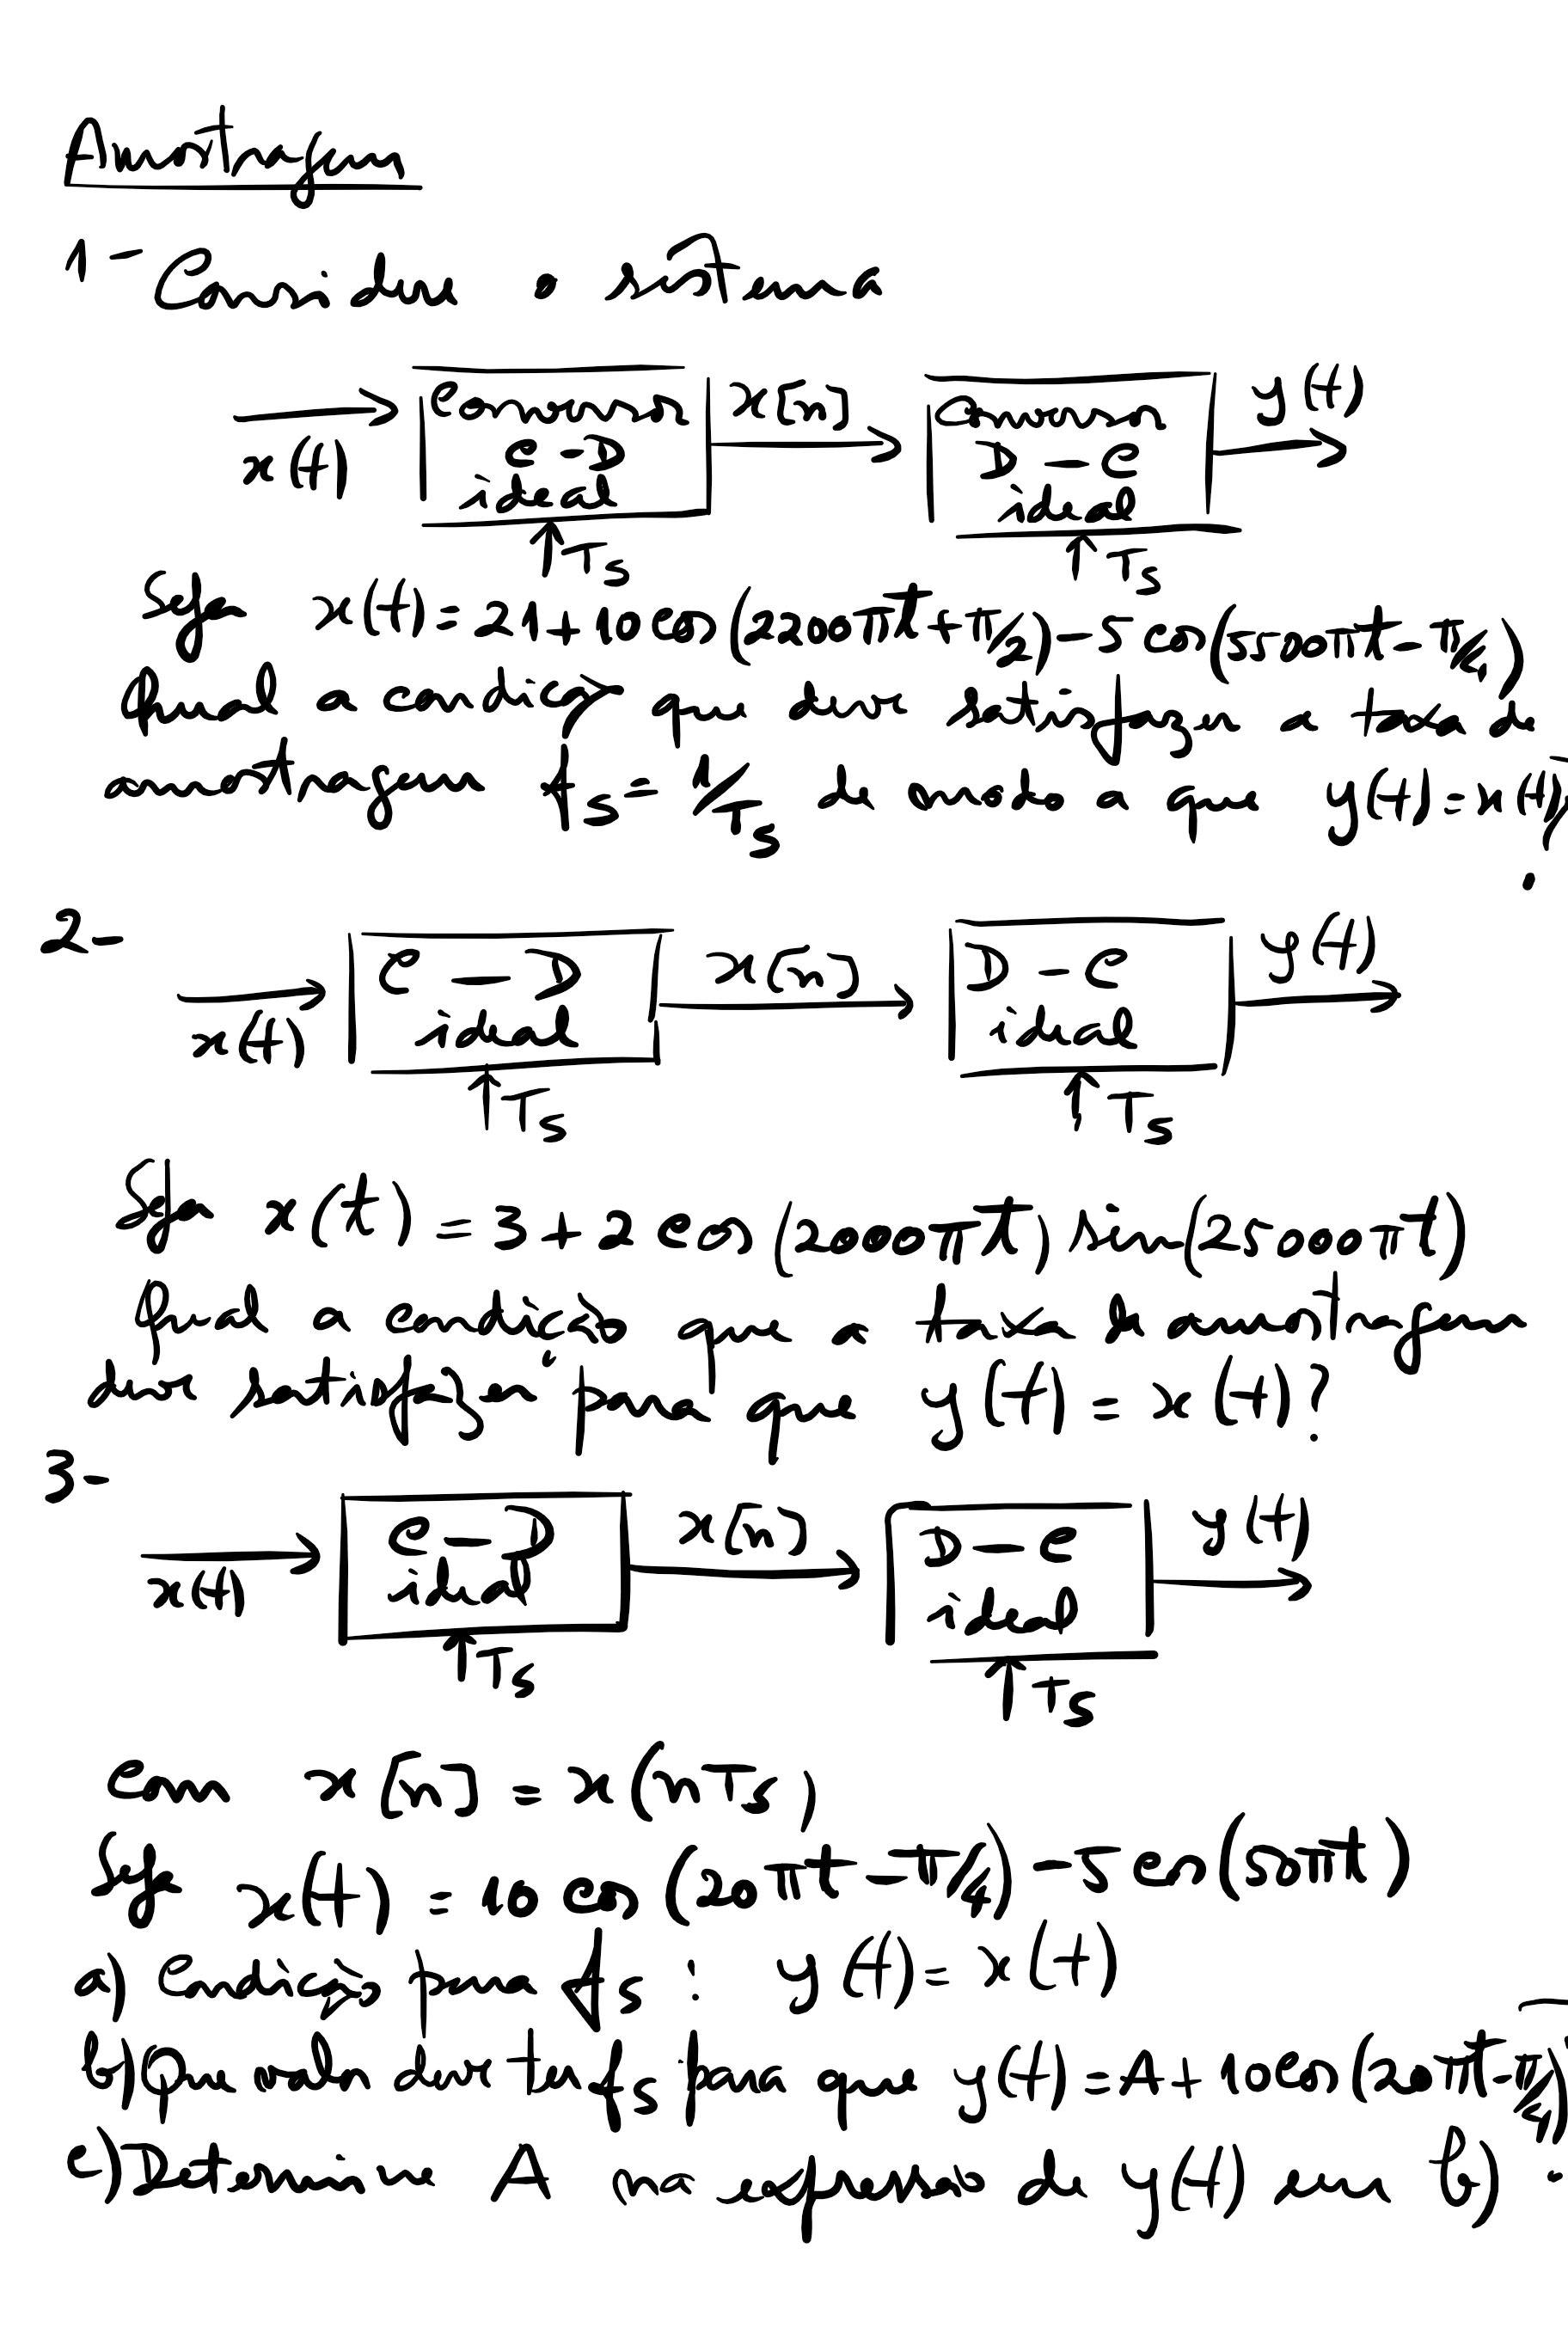 Amostragem
1- Considere o sistema
x(t) Conversor C-D ideal Ts x[n] Conversor D-C ideal Ts y(t)
Seja x(t) = 21 + 10 cos(2200πt + π/2) - 5 cos(5500πt - π/4)
Qual a condição que deve satisfazer a taxa de
amostragem fs = 1/Ts de modo a que y(t) = x(t)?
2-
x(t) C-D ideal Ts x[n] D-C ideal Ts y(t)
Seja x(t) = 3 + 2 cos(2000πt) sin(25000πt)
Qual a condição que a taxa de amostragem
deve satisfazer para que y(t) = x(t)?
3-
x(t) C-D ideal Ts x[n] D-C ideal Ts y(t)
com x[n] = x(nTs)
Seja x(t) = 10 cos(20πt - π/4) - 5 cos(50πt)
a) Condição para fs : y(t) = x(t)
b) Que valor deve ter fs para que y(t) = A + 10 cos(20πt - π/4)?
c) Determine A na expressão de y(t) em b).